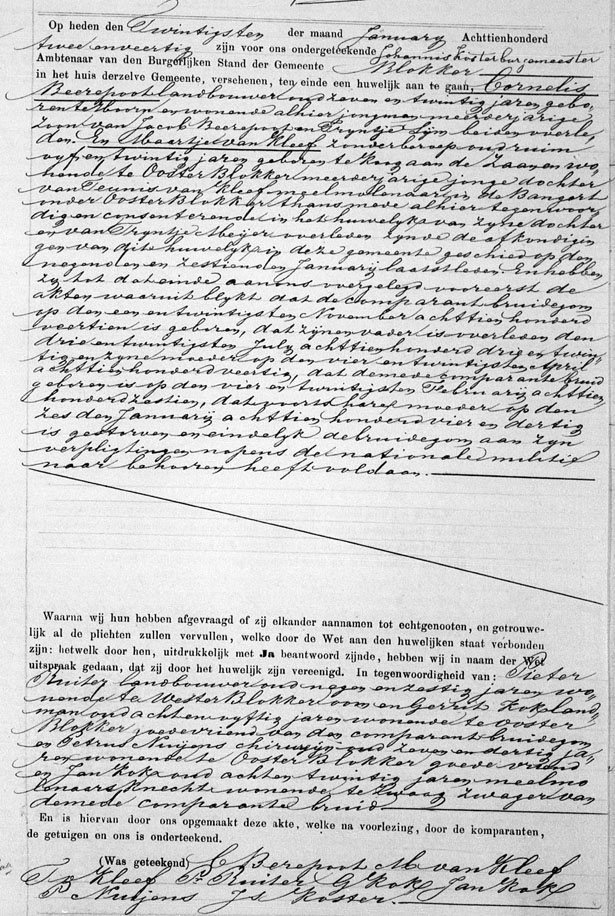 Op heden den Twintigsten der maand January Achttienhonderd
twee en veertig zijn voor ons ondergeteekende Johannis Koster burgemeester
Ambtenaar van den Burgerlijken Stand der Gemeente Blokker
in het huis derzelve Gemeente, verschenen, ten einde een huwelijk aan te gaan, Cornelis
Beerepoot landbouwer oud zeven en twintig jaren gebo-
ren te Hoorn en wonende alhier jongman meerderjarige
zoon van Jacob Beerepoot en Tryntje Zijm beiden overle,
den. En Maartje van Kleef zonder beroep oud ruim
vyf en twintig jaren geboren te Koog aan de Zaan en wo-
nende te Ooster Blokker meerderjarige jonge dochter
van Teunis van Kleef meelmolenaar in de Bangert
onder Ooster Blokker thans mede alhier tegenwoor
dig en consenterende in het huwelyk van zyne dochter
en van Tryntje Meijer overleden zynde de afkondigin
gen van dit huwelijk in deze gemeente geschied op den
negenden en zestienden January laatstleden. En hebben
zy tot dat einde aan ons overgelegd vooreerst de
akten waaruit blykt dat de comparant bruidegom
op den een en twintigsten November achttien honderd
veertien is geboren, dat zijnen vader is overleden den
drie en twintigsten July achttienhonderd drie en twin-
tig en zyne moeder op den vier en twintigsten April
achttienhonderd veertig, dat de mede comparante bruid
geboren is op den vier en twintigsten February achttien
honderd zestien, dat voorts hare moeder op den
zesden January achttienhonderd vier en dertig
is gestorven en eindelyk de bruidegom aan zyn
verpligtingen nopens de nationale militie
naar behooren heeft voldaan.
Waarna wij hun hebben afgevraagd of zij elkander aannamen tot echtgenooten, en getrouwe-
lijk al de plichten zullen vervullen, welke door de Wet aan den huwelijken staat verbonden
zijn: hetwelk door hen, uitdrukkelijk met Ja beantwoord zijnde, hebben wij in naam der Wet
uitspraak gedaan, dat zij door het huwelijk zijn vereenigd. In tegenwoordigheid van: Pieter
Ruiter landbouwer oud negen en zestig jaren wo-
nende te Wester Blokker oom en Gerrit Kok land-
man oud acht en vyftig jaren wonende te Ooster
Blokker goede vriend van den comparant bruidegom
en Petrus Nuijens chirurgijn oud zeven en dertig ja-
ren wonende te Ooster Blokker goede vriend
en Jan Kok oud acht en twintig jaren meelmo
lenaarsknecht wonende te Zwaag zwager van
de mede comparante bruid
En is hiervan door ons opgemaakt deze akte, welke na voorlezing, door de komparanten,
de getuigen en ons is onderteekend.
(Was geteekend) C Beerepoot M. van Kleef
T v Kleef P. Ruiter G Kok Jan Kok
P Nuijens Js Koster.